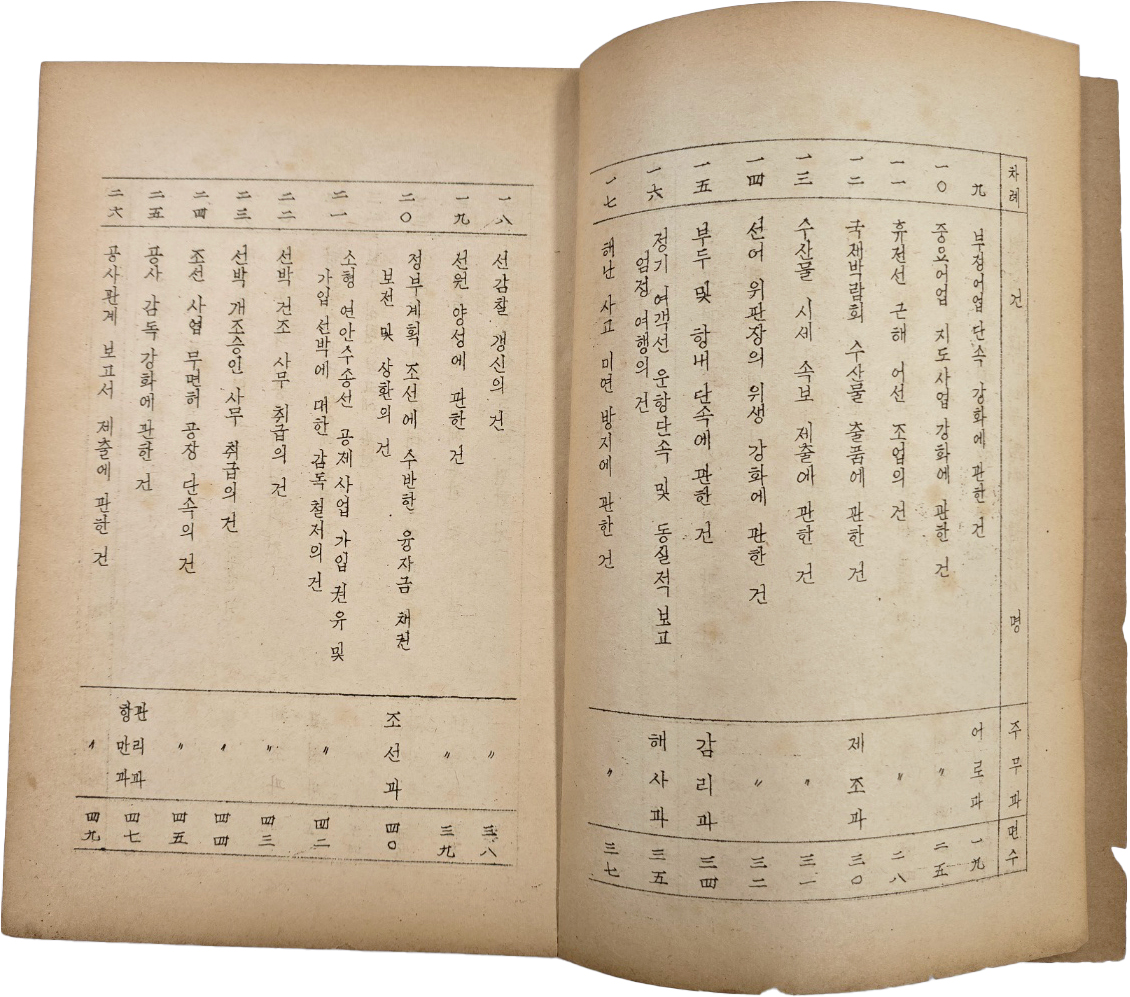 차례 건 명 주무과 면수
九 부정어업 단속 강화에 관한 건 어로과 一九
一〇 중요어업 지도사업 강화에 관한 건 〃 二五
一一 휴전선 근해 어선 조업의 건 〃 二八
一二 국제박람회 수산물 출품에 관한 건 제조과 三〇
一三 수산물 시세 속보 제출에 관한 건 〃 三一
一四 선어 위판장의 위생 강화에 관한 건 〃 三二
一五 부두 및 항내 단속에 관한 건 감리과 三四
一六 정기 여객선 운항단속 및 동실적 보고
엄정 여행의 건 해사과 三五
一七 해난 사고 미연 방지에 관한 건 〃 三七
一八 선감찰 갱신의 건 〃 三八
一九 선원 양성에 관한 건 〃 三九
二〇 정부계획 조선에 수반한 융자금 채권
보전 및 상환의 건 조선과 四〇
二一 소형 연안수송선 공제사업 가입 권유 및
가입 선박에 대한 감독 철저의 건 〃 四二
二二 선박 건조 사무 취급의 건 〃 四三
二三 선박 개조승인 사무 취급의 건 〃 四四
二四 조선 사업 무면허 공장 단속의 건 〃 四五
二五 공사 감독 강화에 관한 건 관리과
항만과 四七
二六 공사관계 보고서 제출에 관한 건 〃 四九